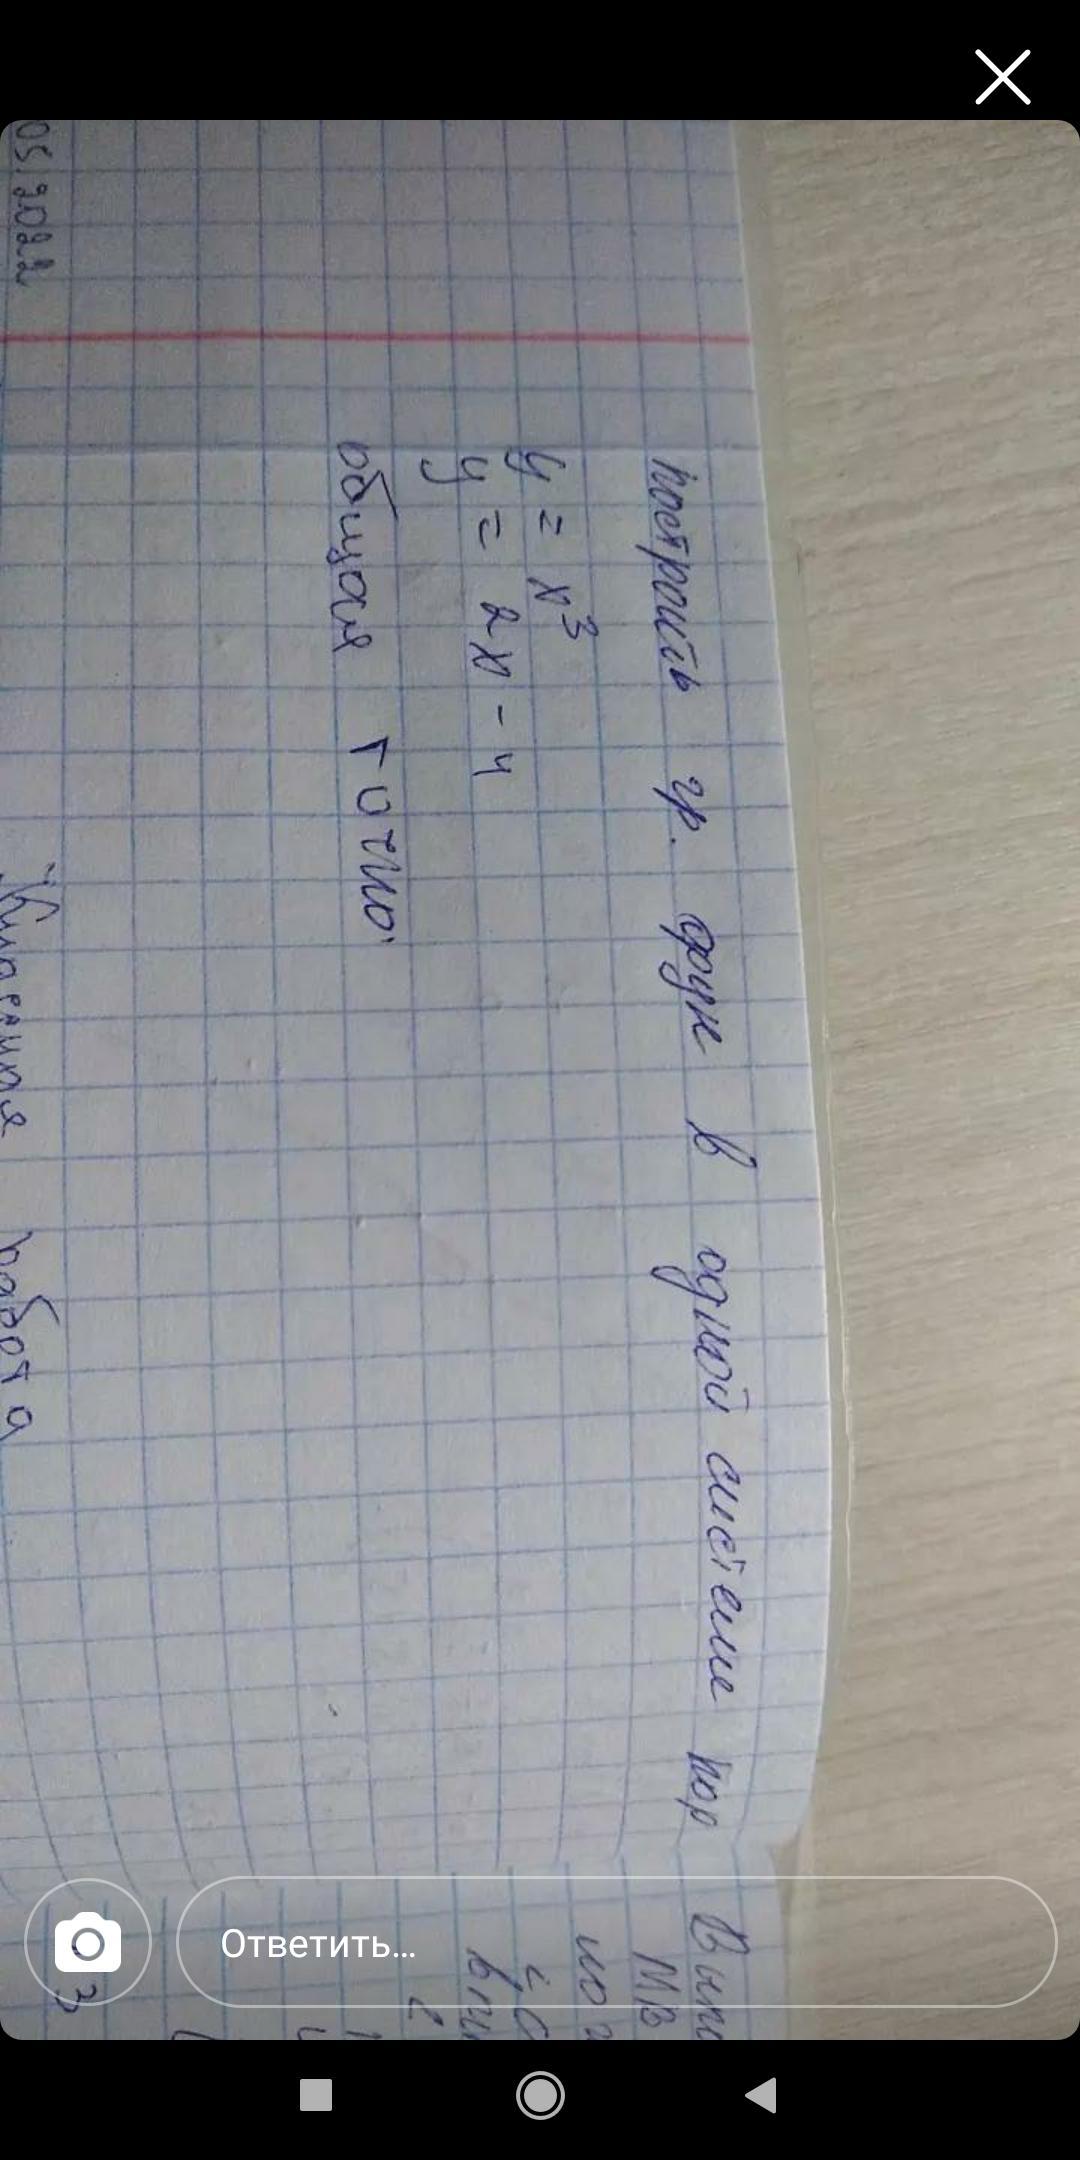 Построить гр. функ в одной системе кор
y = x³
y = 2x - 4
общая точка
05.2022
Классная работа
Ответить...